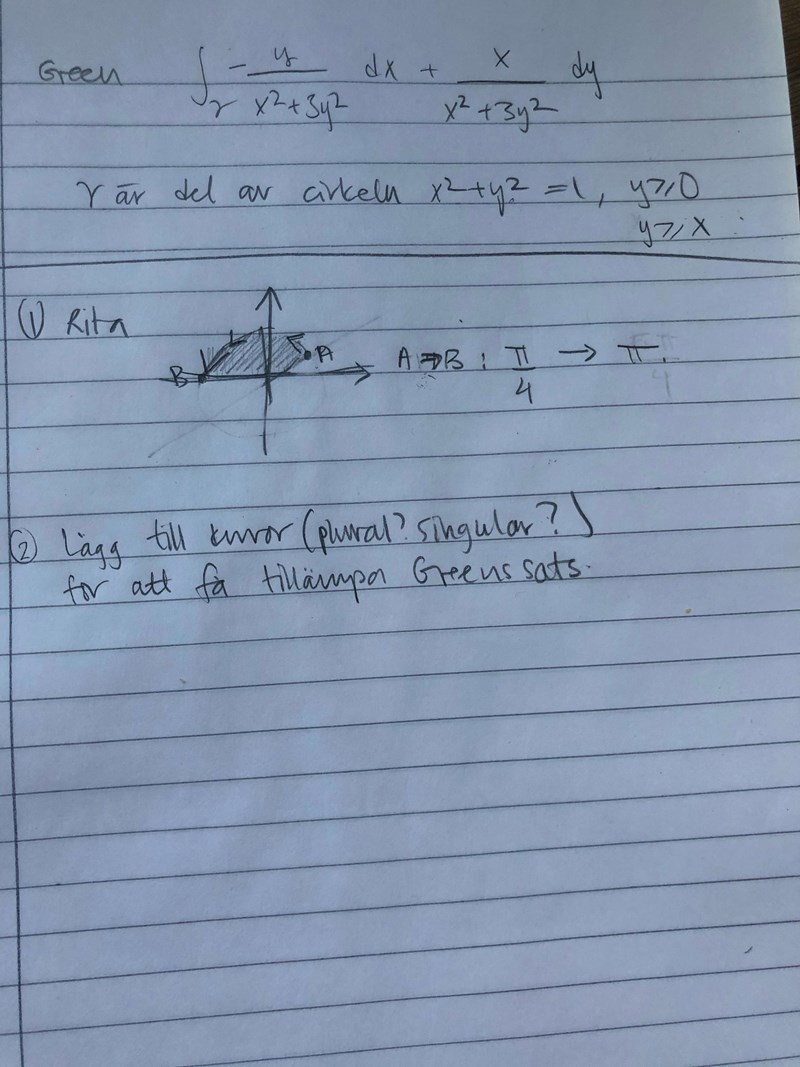 Green ∫γ - y/(x²+3y²) dx + x/(x²+3y²) dy
γ är del av cirkeln x²+y² = 1, y≥0
y≥x
① Rita
A
B
A⇒B : π/4 → π.
② Lägg till kurvor (plural? singular?)
för att få tillämpa Greens sats.